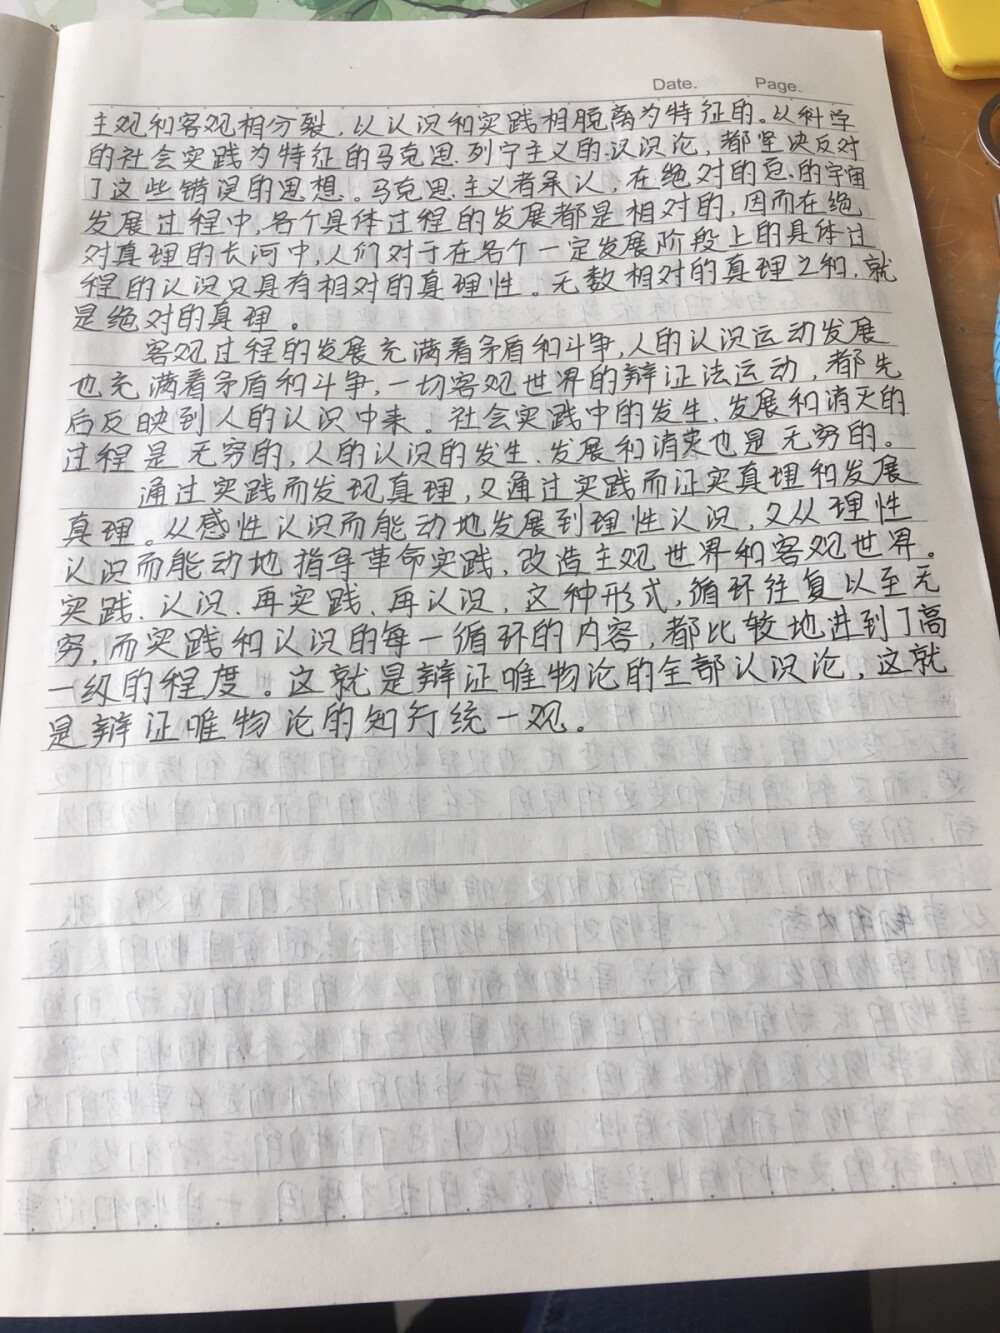 Date. Page.
主观和客观相分裂，以认识和实践相脱离为特征的。以科学
的社会实践为特征的马克思.列宁主义的认识论，都坚决反对
了这些错误的思想。马克思.主义者承认，在绝对的总.的宇宙
发展过程中，各个具体过程的发展都是相对的，因而在绝
对真理的长河中，人们对于在各个一定发展阶段上的具体过
程的认识只具有相对的真理性。无数相对的真理之和，就
是绝对的真理。
客观过程的发展充满着矛盾和斗争，人的认识运动发展
也充满着矛盾和斗争，一切客观世界的辩证法运动，都先
后反映到人的认识中来。社会实践中的发生、发展和消灭的
过程是无穷的，人的认识的发生、发展和消灭也是无穷的。
通过实践而发现真理，又通过实践而证实真理和发展
真理。从感性认识而能动地发展到理性认识，又从理性
认识而能动地指导革命实践，改造主观世界和客观世界。
实践、认识、再实践、再认识，这种形式，循环往复以至无
穷，而实践和认识的每一循环的内容，都比较地进到了高
一级的程度。这就是辩证唯物论的全部认识论，这就
是辩证唯物论的知行统一观。